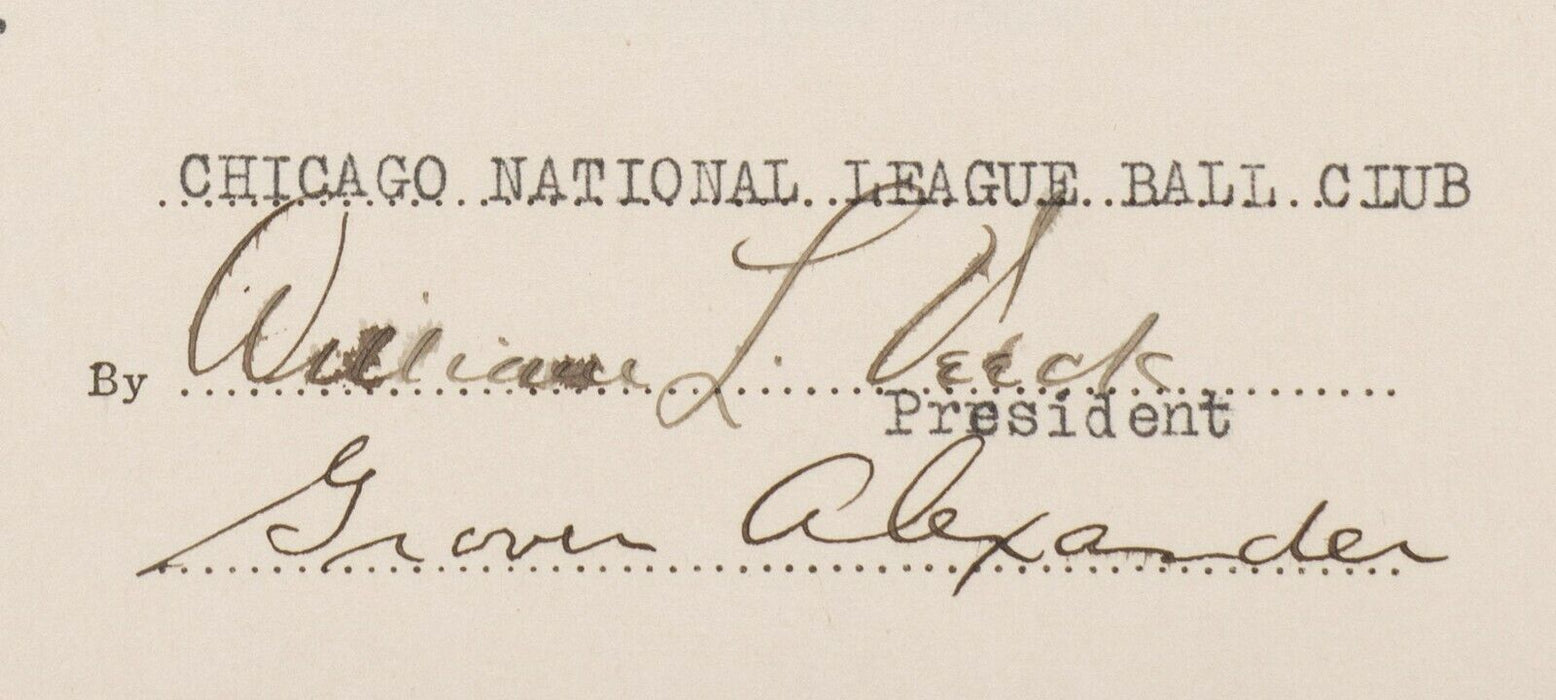 CHICAGO NATIONAL LEAGUE BALL CLUB
By William L. Veeck
President
Grover Alexander